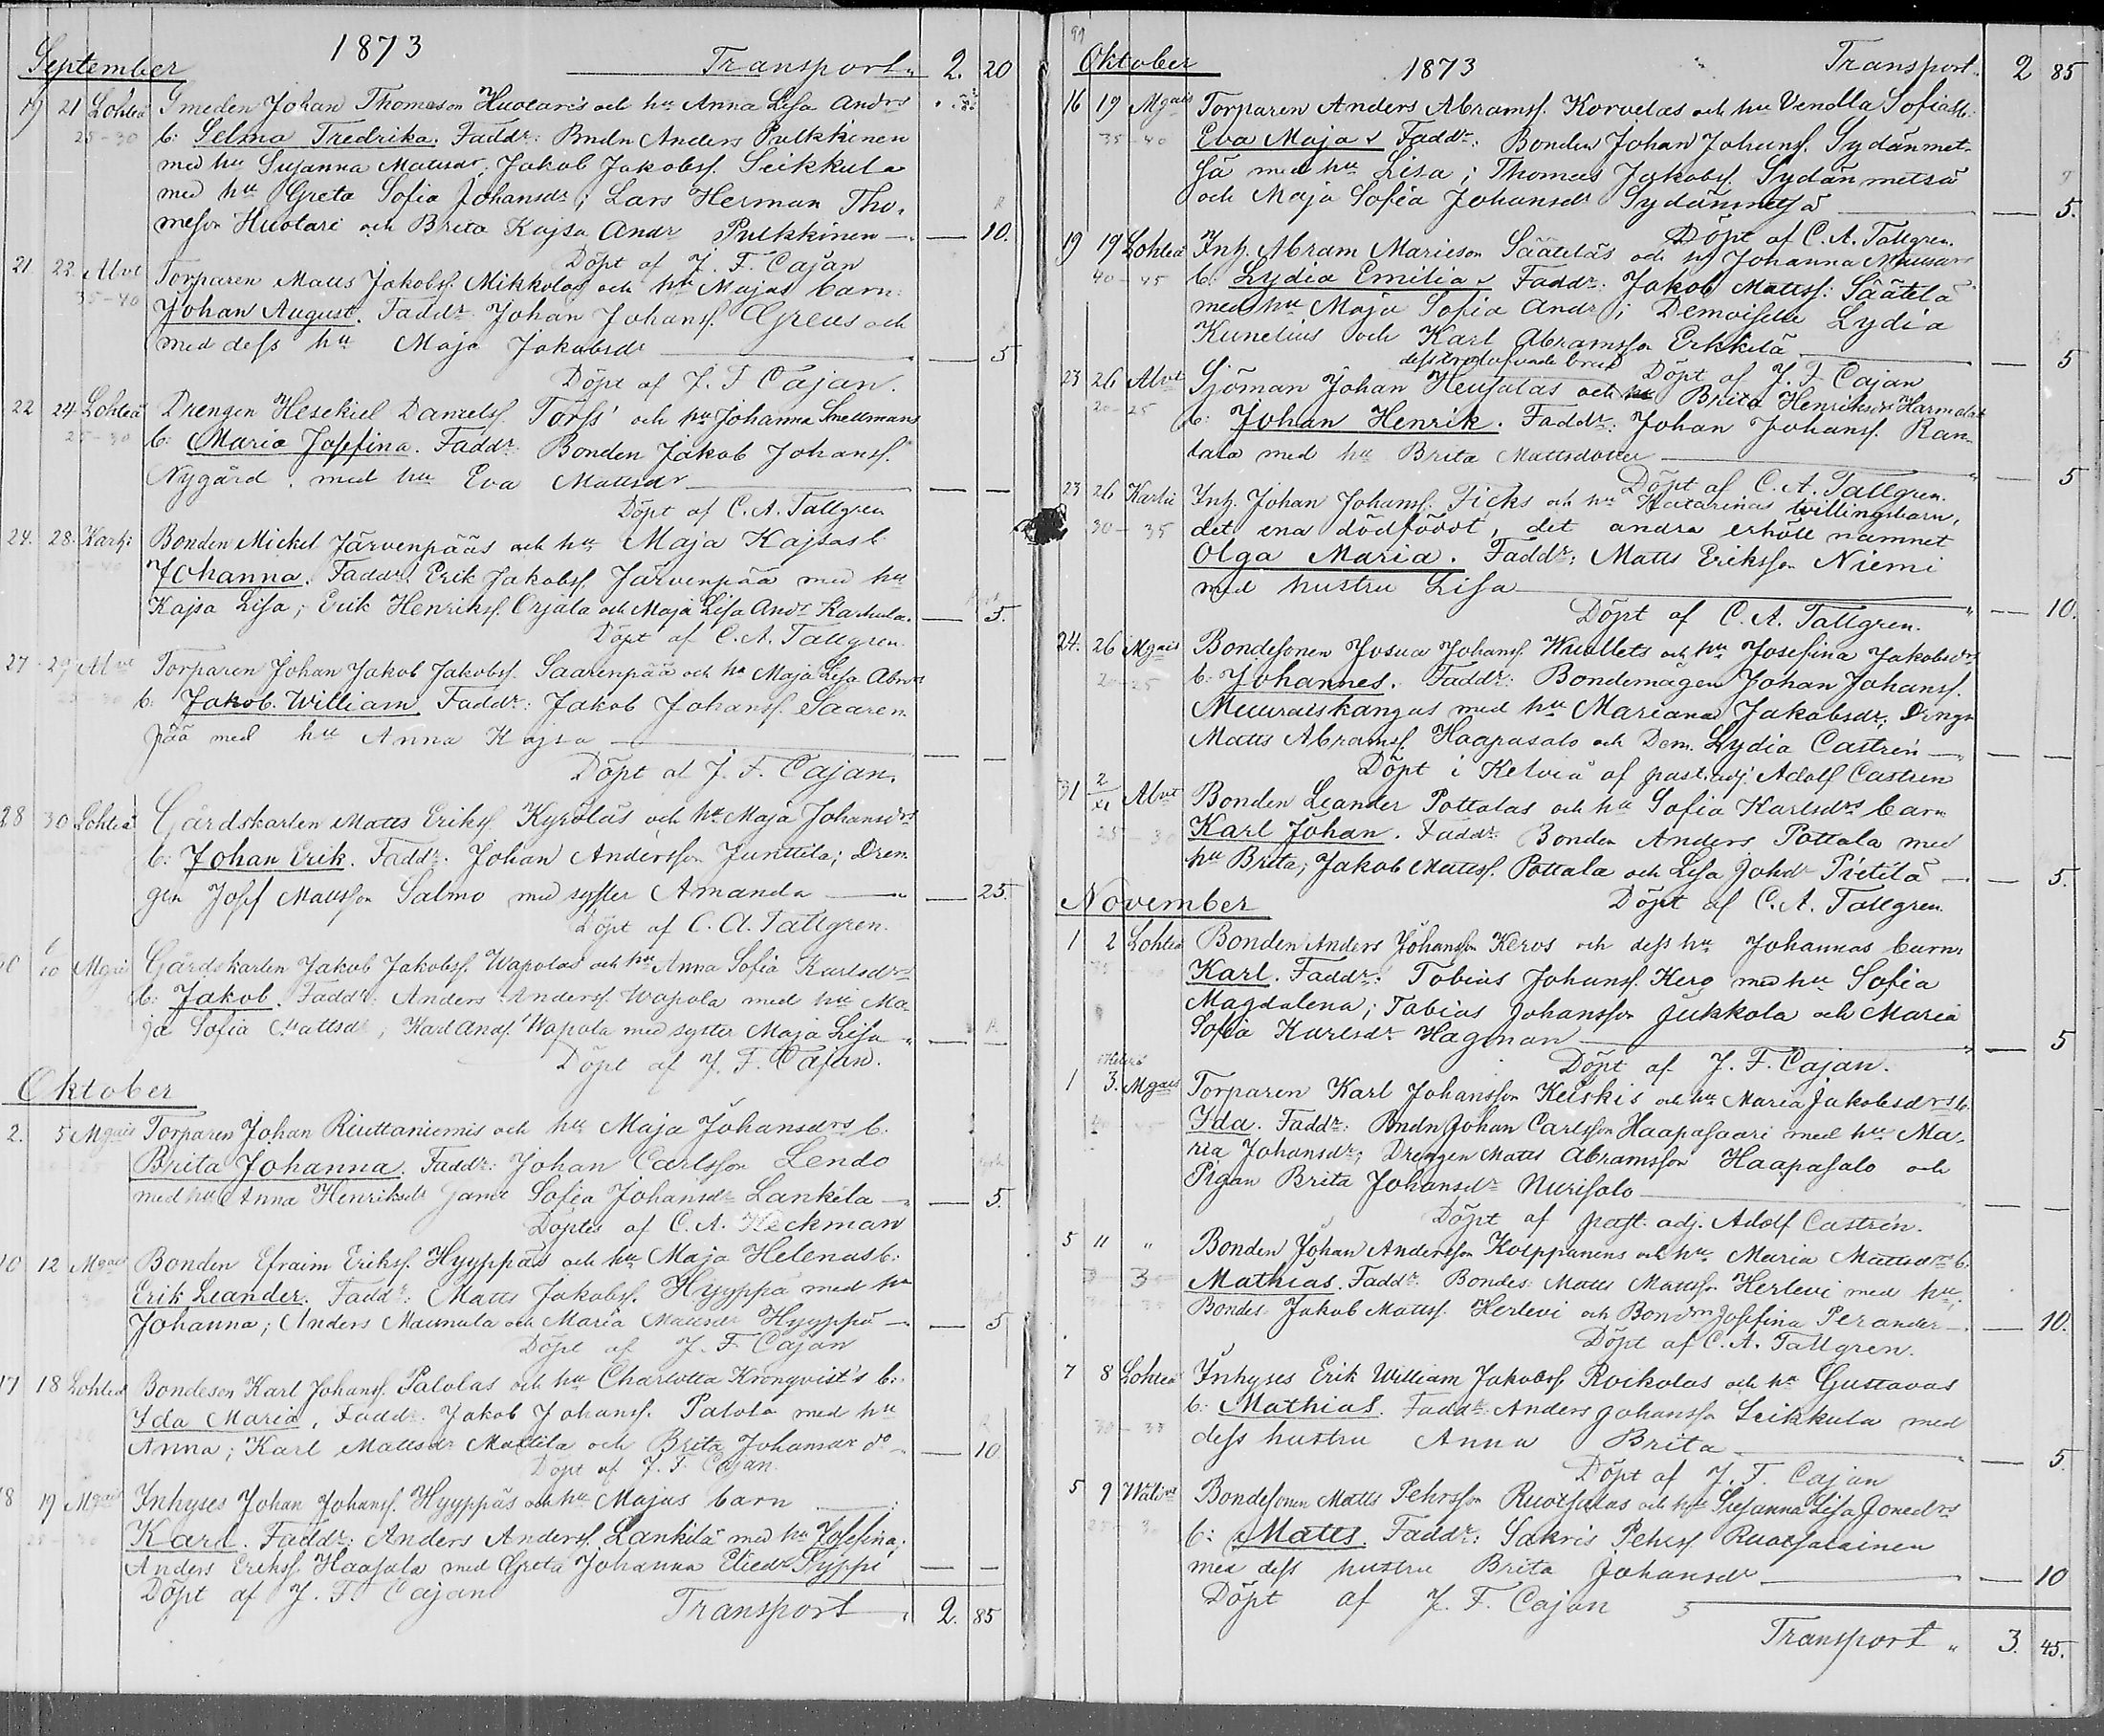 1873
September Transport 2. 20
19 21 Lohteå Smeden Johan Thomason Huotaris och hu Anna Lisa Andrs
25-30 b: Selma Fredrika. Faddr: Bndn Anders Pulkkinen
med hu Susanna Mattsdr, Jakob Jakobsf. Seikkula
med hu Greta Sofia Johansdr; Lars Herman Tho-
meson Huotari och Brita Kajsa Andr Pulkkinen — — 10.
Döpt af J. F. Cajan
21. 22. Alvt Torparen Matts Jakobsf. Mikkolas och hu Majas barn:
35-40 Johan August. Faddr Johan Johansf. Greus och
med dess hu Maja Jakobsdr — — 5
Döpt af J. F Cajan.
22 24 Lohteå Drengen Hesekiel Danielsf. Torss' och hu Johanna Snellmans
25-30 b: Maria Josefina. Faddr: Bonden Jakob Johansf.
Nygård med hu Eva Mattsdr — — —
Döpt af C. A. Tallgren
24. 28. Karhi Bonden Mickel Järvenpääs och hu Maja Kajsas b
Johanna. Faddr: Erik Jakobsf. Järvenpää med hu
Kajsa Lisa; Erik Henriksf. Orjala och Maja Lisa Andr Karhula. — 5.
Döpt af C. A. Tallgren.
27 29 Alvt Torparen Johan Jakob Jakobsf. Saarenpää och hu Maja Lisa Abrdrs
b: Jakob William Faddr: Jakob Johansf. Saaren-
pää med hu Anna Kajsa — — —
Döpt af J. F. Cajan.
28 30 Lohteå Gårdskarlen Matts Eriksf. Kyrölas och hu Maja Johansdrs
b: Johan Erik. Faddr. Johan Andersson Junttila; Dren-
gen Josef Mattsson Salmo med syster Amanda — — 25.
Döpt af C. A. Tallgren.
10 Mgais Gårdskarlen Jakob Jakobsf. Wapolas och hu Anna Sofia Karlsdrs
b: Jakob. Faddr: Anders Andersf. Wapola med hu Ma-
ja Sofia Mattsdr, Karl Andf. Wapola med syster Maja Lisa — —
Döpt af J. F. Cajan.
Oktober
2. 5 Mgais Torparen Johan Riuttaniemis och hu Maja Johansdrs b.
Brita Johanna. Faddr: Johan Carlsson Lendo
med hu Anna Henriksdr samt Sofia Johansdr Lankila — — 5.
Döptes af C. A. Heckman
10 12 Mgais Bonden Efraim Eriksf. Hyyppäs och hu Maja Helenas b:
Erik Leander. Faddr: Matts Jakobsf. Hyyppä med hu
Johanna; Anders Maunula och Maria Mattsdr Hyyppä — — 5
Döpt af J. F Cajan
17 18 Lohteå Bondeson Karl Johansf. Palolas och hu Charlotta Kronqvist's b:
Ida Maria. Faddr: Jakob Johansf. Palola med hu
Anna; Karl Mattsdr Mattila och Brita Johansdr do — — 10
Döpt af J. F. Cajan.
18 19 Mgais Inhyses Johan Johansf. Hyyppäs och hu Majas barn —
25-30 Karl. Faddr: Anders Andersf. Lankila med hu Josefina;
Anders Eriksf. Haasala med Greta Johanna Eliedr Syppi — —
Döpt af J. F. Cajan
Transport 2. 85
Oktober 1873 Transport 2 85
16 19 Mgais Torparen Anders Abramsf. Korvelas och hu Vendla Sofias b:
35-40 Eva Maja Faddr: Bonden Johan Johansf. Sydänmet-
sä med hu Lisa; Thomas Jakobsf. Sydänmetsä
och Maja Sofia Johansdr Sydänmetsä — — 5.
Döpt af C. A. Tallgren.
19 19 Lohteå Inh. Abram Maricson Säätelas och hu Johanna
40-45 b: Lydia Emilia Faddr: Jakob Mattsf. Säätelä
med hu Maja Sofia Andr; Demoiselle Lydia
Kunelius och Karl Abramsson Erkkilä — — 5
Döpt af J. F. Cajan
dess trolofvade brud
23 26 Alvt Sjöman Johan Heusalas och hu Brita Henriksdr Harmalas
20-25 b: Johan Henrik. Faddr: Johan Johansf. Ran-
tala med hu Brita Mattsdotter — — 5
Döpt af C. A. Tallgren.
23 26 Karhi Inh. Johan Johansf. Ficks och hu Katarinas twillingsbarn,
30-35 det ena dödfödt, det andra erhöll namnet
Olga Maria. Faddr: Matts Eriksson Niemi
med hustru Lisa — — 10.
Döpt af C. A. Tallgren.
24. 26 Mgais Bondesonen Josua Johansf. Wuollets och hu Josefina Jakobsdrs
20-25 b: Johannes. Faddr: Bondemågen Johan Johansf.
Muuraiskangas med hu Mariana Jakobsdr; Drngn
Matts Abramsf. Haapasalo och Dem. Lydia Castrén — — —
Döpt i Kelviå af past. adj. Adolf Castren
31 2/XI Alvt Bonden Leander Pottalas och hu Sofia Karlsdrs barn
25-30 Karl Johan. Faddr: Bonden Anders Pottala med
hu Brita; Jakob Mattsf. Pottala och Lisa Johdr Pietilä — — 5.
Döpt af C. A. Tallgren.
November
1 2 Lohteå Bonden Anders Johansson Keros och dess hu Johannas barn
Karl. Faddr: Tobias Johansf. Kero med hu Sofia
Magdalena; Tobias Johansson Jukkola och Maria
Sofia Karlsdr Hagman — — 5
Döpt af J. F. Cajan.
1 3. Mgais Torparen Karl Johansson Keiskis och hu Maria Jakobsdrs b.
Ida. Faddr: Bndn Johan Carlsson Haapasaari med hu Ma-
ria Johansdr; Drengen Matts Abramsson Haapasalo och
Pigan Brita Johansdr Nurisalo — — —
Döpt af past. adj. Adolf Castrén.
5 " " Bonden Johan Andersson Koippanens och hu Maria Mattsdrs b.
Mathias. Faddr: Bondes: Matts Mattsson Herlevi med hu;
Bondes. Jakob Mattsf. Herlevi och Bondm Josefina Perander — — 10.
Döpt af C. A. Tallgren.
7 8 Lohteå Inhyses Erik William Jakobsf. Roikolas och hu Gustavas
30-35 b: Mathias. Faddr: Anders Johansson Seikkula med
dess hustru Anna Brita — — 5.
Döpt af J. F. Cajan
5 9 Wälivt Bondesonen Matts Pehrsson Ruotsalas och hu Susanna Lisa Jonedrs
25-30 b: Matts. Faddr: Sakris Pehrsf. Ruotsalainen
med dess hustru Brita Johansdr — — 10
Döpt af J. F. Cajan
Transport " 3. 45.